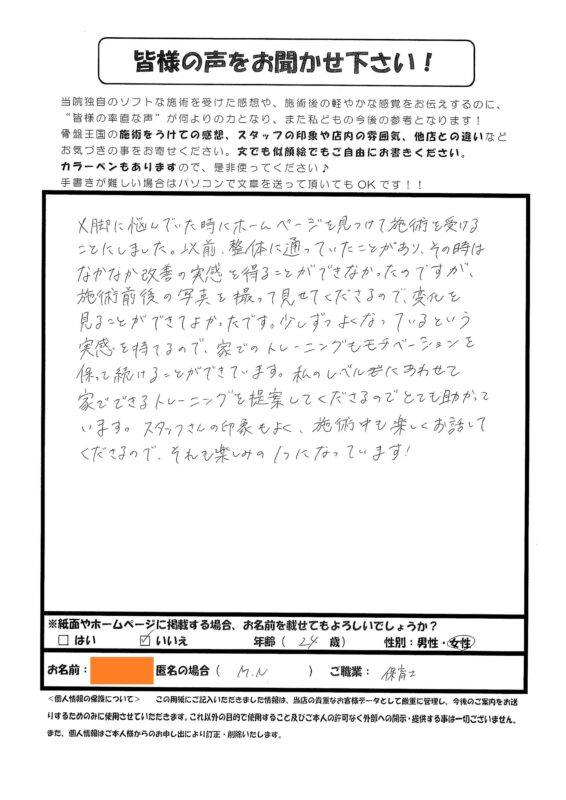 皆様の声をお聞かせ下さい！
当院独自のソフトな施術を受けた感想や、施術後の軽やかな感覚をお伝えするのに、
“皆様の率直な声”が何よりの力となり、また私どもの今後の参考となります！
骨盤王国の施術をうけての感想、スタッフの印象や店内の雰囲気、他店との違いなど
お気づきの事をお寄せください。文でも似顔絵でもご自由にお書きください。
カラーペンもありますので、是非使ってください♪
手書きが難しい場合はパソコンで文章を送って頂いてもOKです！！
X脚に悩んでいた時にホームページを見つけて施術を受ける
ことにしました。以前、整体に通っていたことがあり、その時は
なかなか改善の実感を得ることができなかったのですが、
施術前後の写真を撮って見せてくださるので、変化を
見ることができてよかったです。少しずつよくなっているという
実感を持てるので、家でのトレーニングもモチベーションを
保って続けることができています。私のレベルにあわせて
家でできるトレーニングを提案してくださるのでとても助かって
います。スタッフさんの印象もよく、施術中も楽しくお話して
くださるので、それも楽しみの1つになっています！
※紙面やホームページに掲載する場合、お名前を載せてもよろしいでしょうか？
□ はい ☑ いいえ 年齢（ 24 歳） 性別：男性・女性
お名前： 匿名の場合（ M.N ） ご職業： 保育士
＜個人情報の保護について＞ この用紙にご記入いただきました情報は、当店の貴重なお客様データとして厳重に管理し、今後のご案内をお送
りするためのみに使用させていただきます。これ以外の目的で使用すること及びご本人の許可なく外部への開示・提供する事は一切ございません。
また、個人情報はご本人様からのお申し出により訂正・削除いたします。